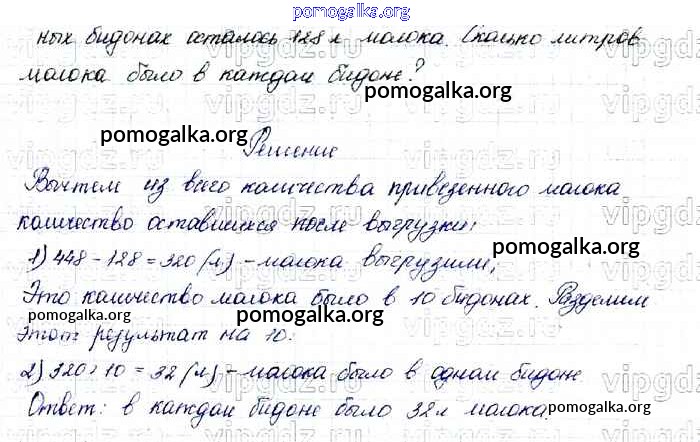 pomogalka.org
ных бидонах осталось 128 л молока. Сколько литров
молока было в каждом бидоне?
pomogalka.org
pomogalka.org
Решение
Вычтем из всего количества привезенного молока
количество оставшихся после выгрузки:
1) 448 - 128 = 320 (л) - молока выгрузили;
pomogalka.org
Это количество молока было в 10 бидонах. Разделим
pomogalka.org
pomogalka.org
pomogalka.org
этот результат на 10:
2) 320 : 10 = 32 (л) - молока было в одном бидоне
Ответ: в каждом бидоне было 32 л молока.
pomogalka.org
vipgdz.ru